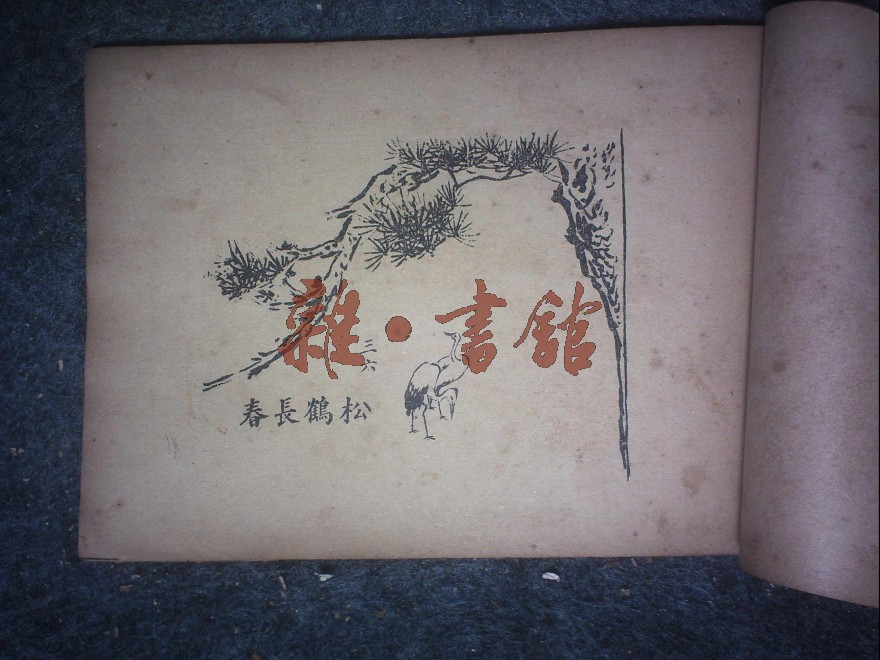 雜·書館
三六
松鶴長春